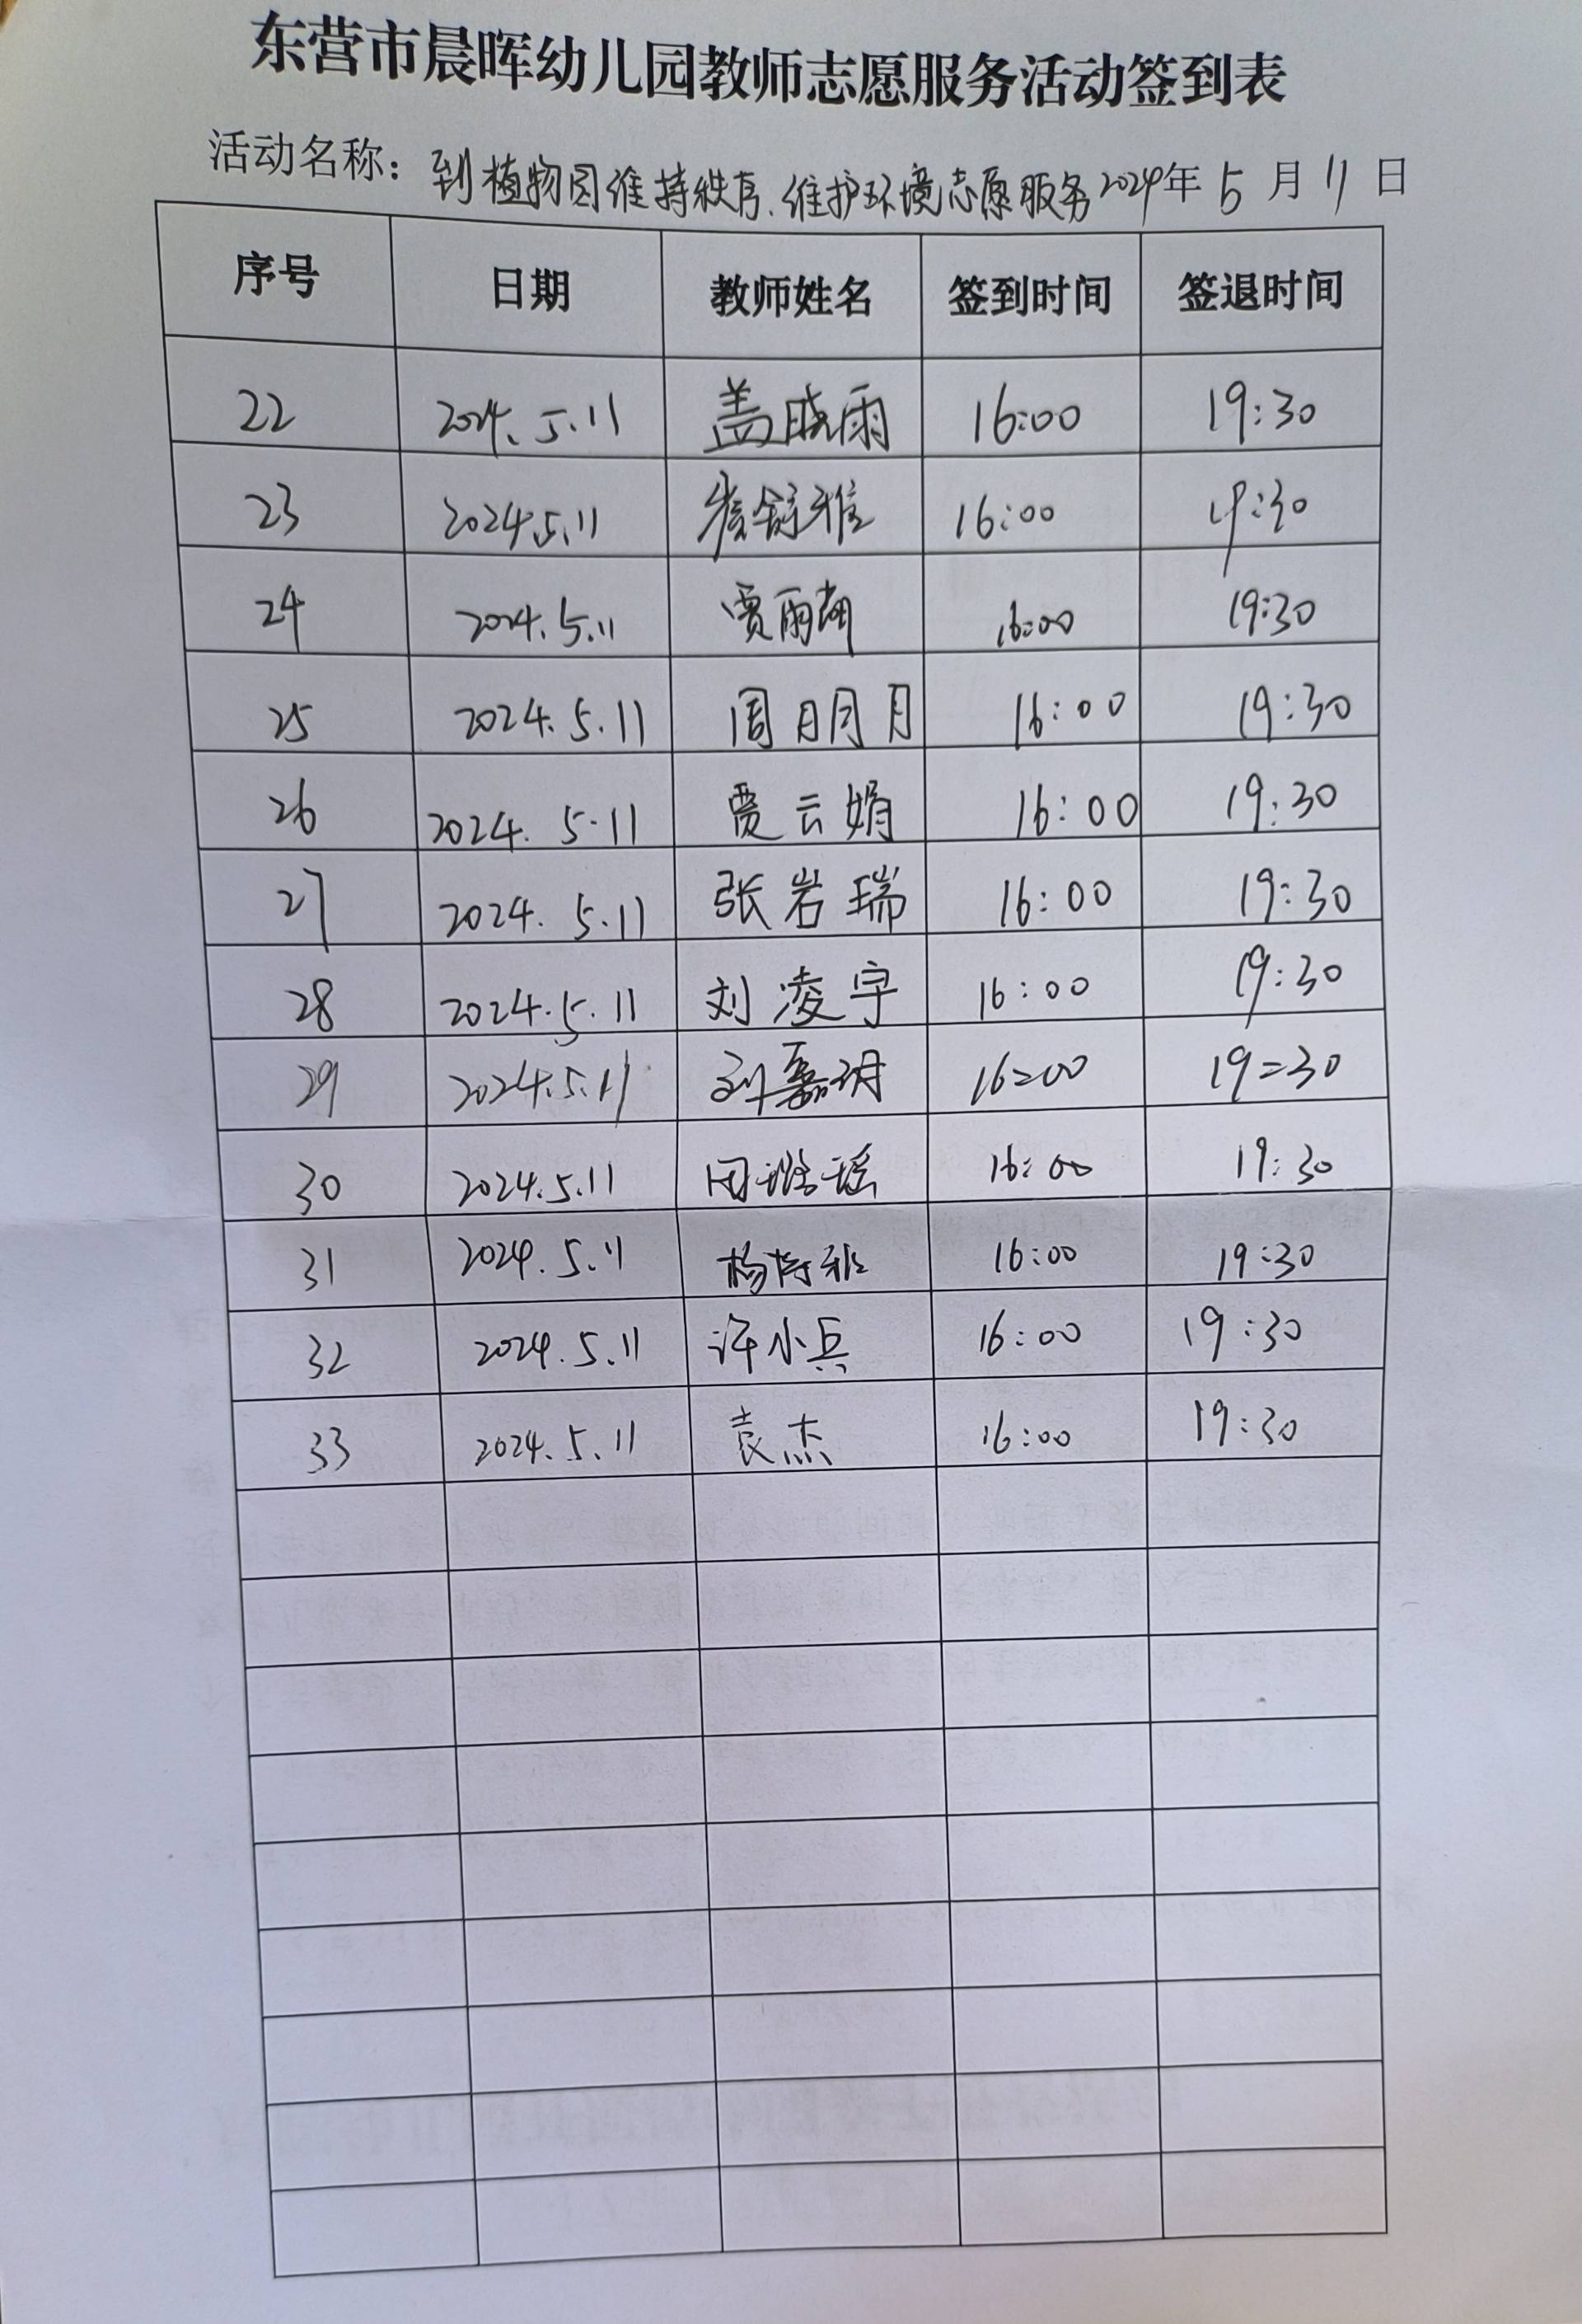 东营市晨晖幼儿园教师志愿服务活动签到表
活动名称：到植物园维持秩序、维护环境志愿服务 2024年 5 月 11 日
序号 日期 教师姓名 签到时间 签退时间
22 2024.5.11 盖晓雨 16:00 19:30
23 2024.5.11 16:00 19:30
24 2024.5.11 贾雨萌 16:00 19:30
25 2024.5.11 周明月 16:00 19:30
26 2024.5.11 贾云娟 16:00 19:30
27 2024.5.11 张岩瑞 16:00 19:30
28 2024.5.11 刘凌宇 16:00 19:30
29 2024.5.11 刘嘉玥 16:00 19:30
30 2024.5.11 16:00 19:30
31 2024.5.11 16:00 19:30
32 2024.5.11 许小兵 16:00 19:30
33 2024.5.11 袁杰 16:00 19:30